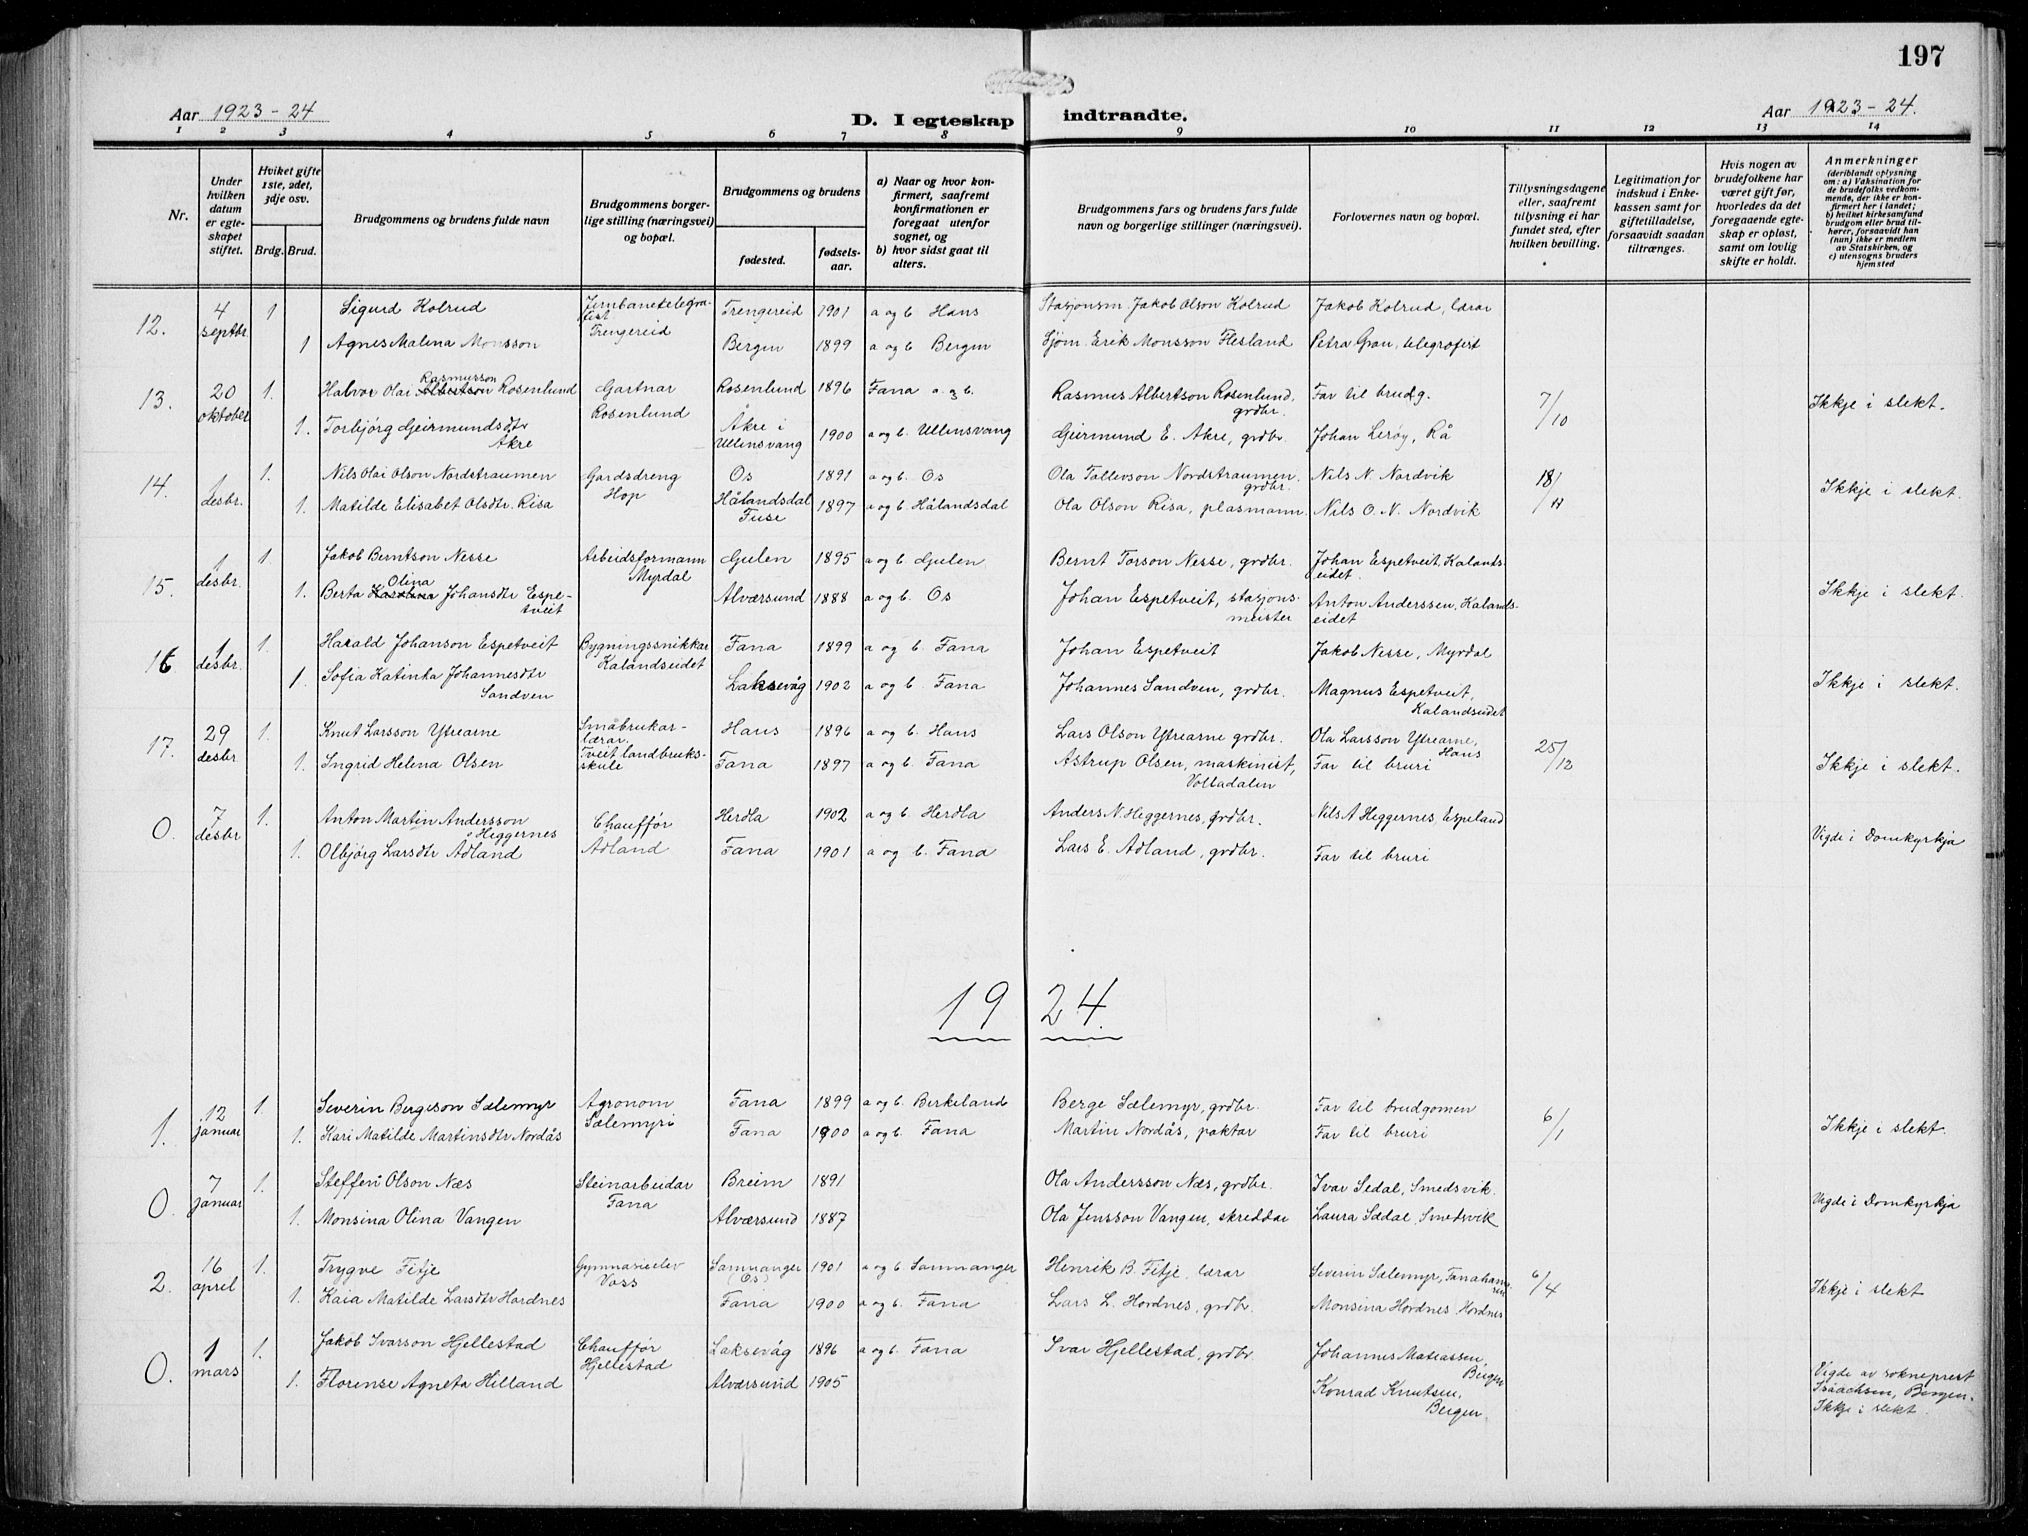 197
Aar 1923-24
D. I egteskap indtraadte.
Aar 1923-24.
1 2 3 4 5 6 7 8 9 10 11 12 13 14
Nr.
Under hvilken datum er egteskapet stiftet.
Hviket gifte 1ste, 2det, 3dje osv.
Brdg. Brud.
Brudgommens og brudens fulde navn
Brudgommens borgerlige stilling (næringsvei) og bopæl.
Brudgommens og brudens
fødested.
fødselsaar.
a) Naar og hvor konfirmert, saafremt konfirmationen er foregaat utenfor sognet, og
b) hvor sidst gaat til alters.
Brudgommens fars og brudens fars fulde navn og borgerlige stillinger (næringsvei).
Forlovernes navn og bopæl.
Tillysningsdagene eller, saafremt tillysning ei har fundet sted, efter hvilken bevilling.
Legitimation for indskud i Enkekassen samt for giftetilladelse, forsaavidt saadan tiltrænges.
Hvis nogen av brudefolkene har været gift før, hvorledes da det foregaaende egteskap er opløst, samt om lovlig skifte er holdt.
Anmerkninger (deriblandt oplysning om: a) Vaksination for de brudefolks vedkommende, der ikke er konfirmert her i landet; b) hvilket kirkesamfund brudgom eller brud tilhører, forsaavidt han (hun) ikke er medlem av Statskirken, og c) utensogns bruders hjemsted
12. 4 septbr. 1 Sigurd Kolrud Jernbanetelegrafist Trengereid Trengereid 1901 a og b Haus Stasjonsm. Jakob Olson Kolrud Jakob Kolrud, lærar
1 Agnes Malena Monsson Bergen 1899 a og b Bergen Sjøm. Erik Monsson Flesland Petra Gran, telegrafist
13. 20 oktober 1. Halvor Olai Albertson Rasmusson Rosenlund Gartnar Rosenlund Rosenlund 1896 Fana a. og b. Rasmus Albertson Rosenlund, grdbr. Far til brudg. 7/10 Ikkje i slekt.
1. Torbjörg Geirmundsdtr Åkre Åkre i Ullensvang 1900 a og b. Ullensvang Geirmund E. Åkre, grdbr. Johan Lerøy, Rå
14. 1 desbr. 1. Nils Olai Olson Nordstraumen Gardsdreng Hop Os 1891 a og b. Os Ola Tollevson Nordstraumen. grdbr. Nils N. Nordvik 18/11 Ikkje i slekt.
1. Matilde Elisabet Olsdtr. Risa Hålandsdal Fuse 1897 a og b. Hålandsdal Ola Olson Risa, plasmann. Nils O. N. Nordvik
15. 1 desbr. 1. Jakob Berntson Nesse Arbeidsformann Myrdal Gulen 1895 a og b. Gulen Bernt Torson Nesse, grdbr. Johan Espetveit, Kalandseidet. Ikkje i slekt.
1. Berta Karolina Olina Johansdtr Espetveit Alværsund 1888 a og b. Os Johan Espetveit, stasjonsmeister Anton Anderssen, Kalandseidet
16 1 desbr. 1. Harald Johanson Espetveit Bygningssnikkar Kalandseidet Fana 1899 a og b. Fana Johan Espetveit Jakob Nesse, Myrdal Ikkje i slekt.
1. Sofia Katinka Johannesdtr Sandven Laksevåg 1902 a og b. Fana Johannes Sandven, grdbr. Magnus Espetveit, Kalandseidet
17. 29 desbr 1. Knut Larsson Ytrearne Småbrukarlærar. Tveit landbruksskule Haus 1896 a og b. Haus Lars Olson Ytrearne grdbr. Ola Larsson Ytrearne, Haus 25/12 Ikkje i slekt.
1. Ingrid Helena Olsen Fana 1897 a og b. Fana Astrup Olsen, maskinist, Far til bruri
0. 7 desbr 1. Anton Martin Andersson Heggernes Chauffør Adland Herdla 1902 a og b. Herdla Anders N. Heggernes, grdbr. Nils A Heggernes, Espeland Vigde i Domkyrkja
1. Olbjørg Larsdtr Adland Fana 1901 a og b. Fana Lars E. Adland, grdbr. Far til bruri
1924.
1. 12 januar 1. Severin Bergeson Sælemyr Agronom Sælemyri Fana 1899 a og b. Birkeland Berge Sælemyr, grdbr. Far til brudgomen 6/1 Ikkje i slekt.
1. Kari Matilde Martinsdtr Nordås Fana 1900 a og b. Fana Martin Nordås, paktar Far til bruri
0. 7 januar 1. Steffen Olson Næs Steinarbeidar Fana Breim 1891 Ola Andersson Næs, grdbr. Ivar Sedal, Smedsvik. Vigde i Domkyrkja
1. Monsina Olina Vangen Alværsund 1887 Ola Jensson Vangen, skreddar Laura Sædal, Smedsvik
2. 16 aprel 1. Trygve Fitje Gymnasieelev Voss Samnanger (Os) 1901 a og b Samnanger Henrik B. Fitje, lærar Severin Sælemyr, Fanahameren 6/4 Ikkje i slekt
1. Kaia Matilde Larsdtr Hordnes Fana 1900 a og b. Fana Lars L. Hordnes, grdbr. Monsina Hordnes, Hordnes
0. 1 mars 1. Jakob Ivarson Hjellestad Chauffør Hjellestad Laksevåg 1896 a og b. Fana Ivar Hjellestad, grdbr Johannes Matiassen, Bergen Vigde av sokneprest Isaachsen, Bergen. Ikkje i slekt.
1. Florense Agneta Hilland Alværsund 1905 Konrad Knutsen, Bergen.